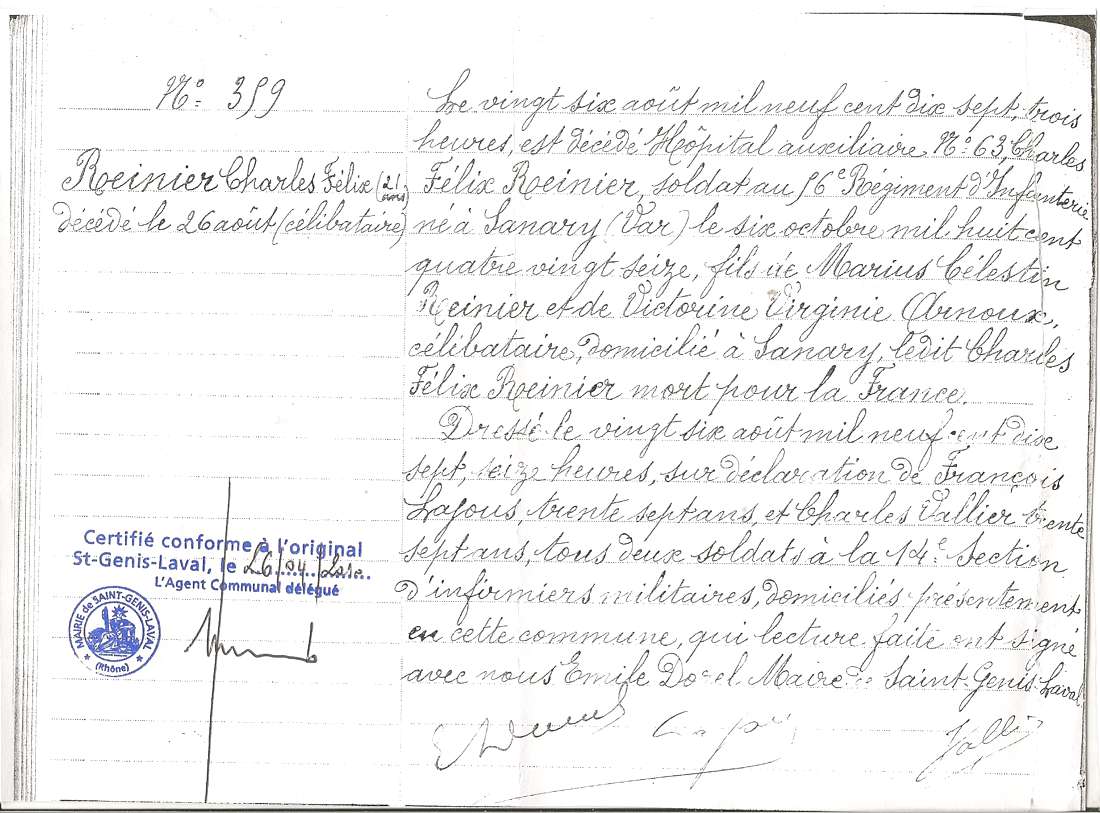 N° 359
Reinier Charles Félix (21 ans)
décédé le 26 août (célibataire)
Le vingt six août mil neuf cent dix sept, trois
heures, est décédé Hôpital auxiliaire N° 63, Charles
Félix Reinier, soldat au 56e Régiment d'Infanterie
né à Sanary (Var) le six octobre mil huit cent
quatre vingt seize, fils de Marius Célestin
Reinier et de Victorine Virginie Arnoux,
célibataire, domicilié à Sanary, ledit Charles
Félix Reinier mort pour la France.
Dressé le vingt six août mil neuf cent dix
sept, seize heures, sur déclaration de François
Lajous, trente sept ans, et Charles Vallier trente
sept ans, tous deux soldats à la 14e Section
d'infirmiers militaires, domiciliés présentement
en cette commune, qui lecture faite ont signé
avec nous Emile Dorel Maire de Saint-Genis-Laval
Certifié conforme à l'original
St-Genis-Laval, le 26/04/
L'Agent Communal délégué
MAIRIE de SAINT-GENIS-LAVAL
(Rhône)